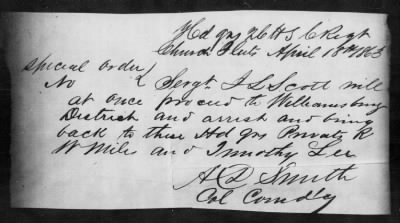 Hd qrs 26th S C Regt
Church Flats April 18th 1863
Special order
No
Sergt J L Scott will
at once proceed to Williamsburg
District and arrest and bring
back to these Hd qrs Private R
W Miles and Timmothy Lee
A D Smith
Col Comdg